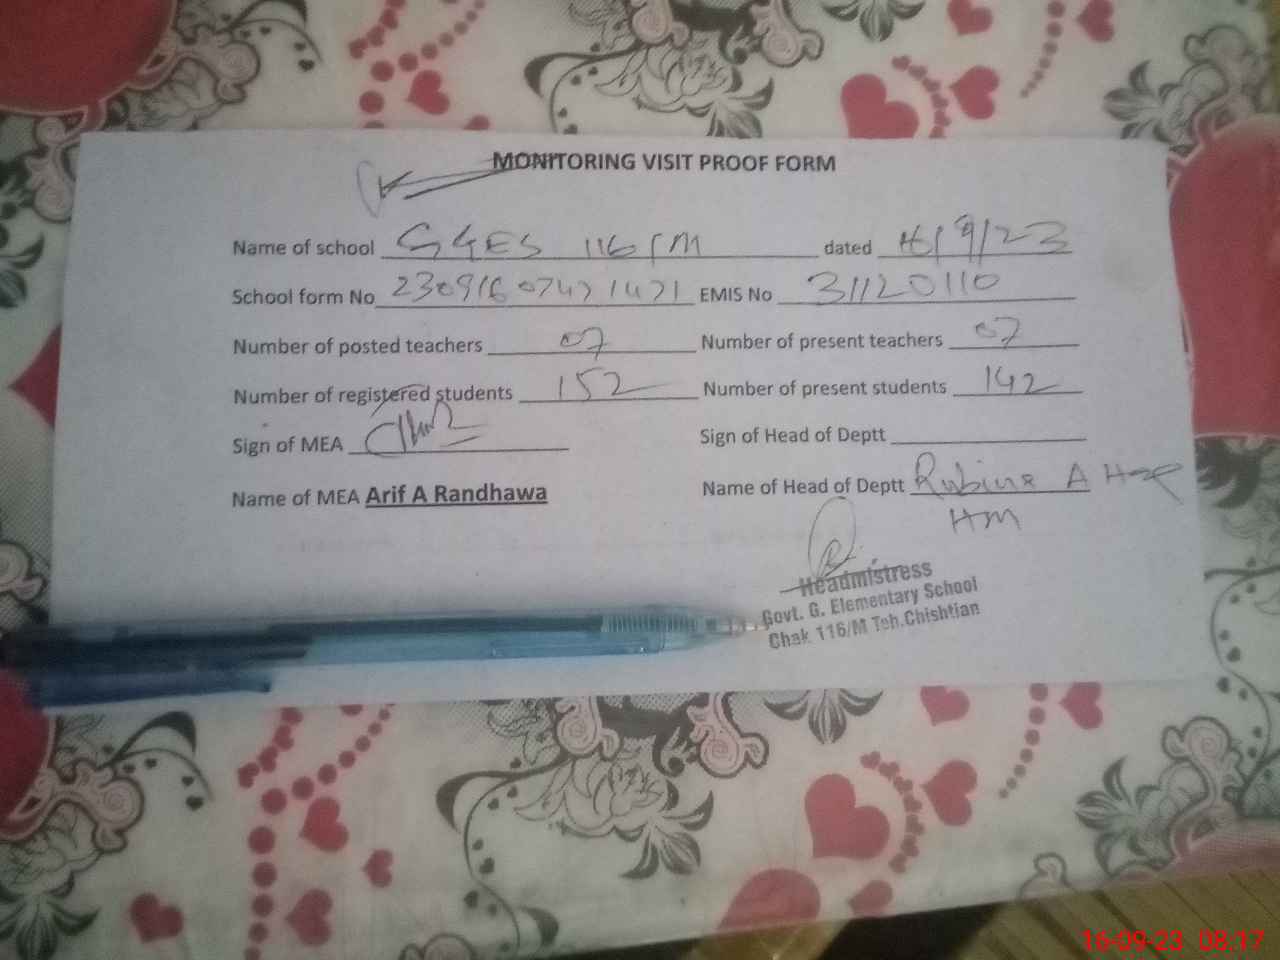 MONITORING VISIT PROOF FORM
Name of school GGES 116/M dated 16/9/23
School form No 23091607471471 EMIS No 31120110
Number of posted teachers 07 Number of present teachers 07
Number of registered students 152 Number of present students 142
Sign of MEA Sign of Head of Deptt
Name of MEA Arif A Randhawa Name of Head of Deptt Rubina A
HM
Headmistress
Govt. G. Elementary School
Chak 116/M Teh.Chishtian
16-09-23 08:17